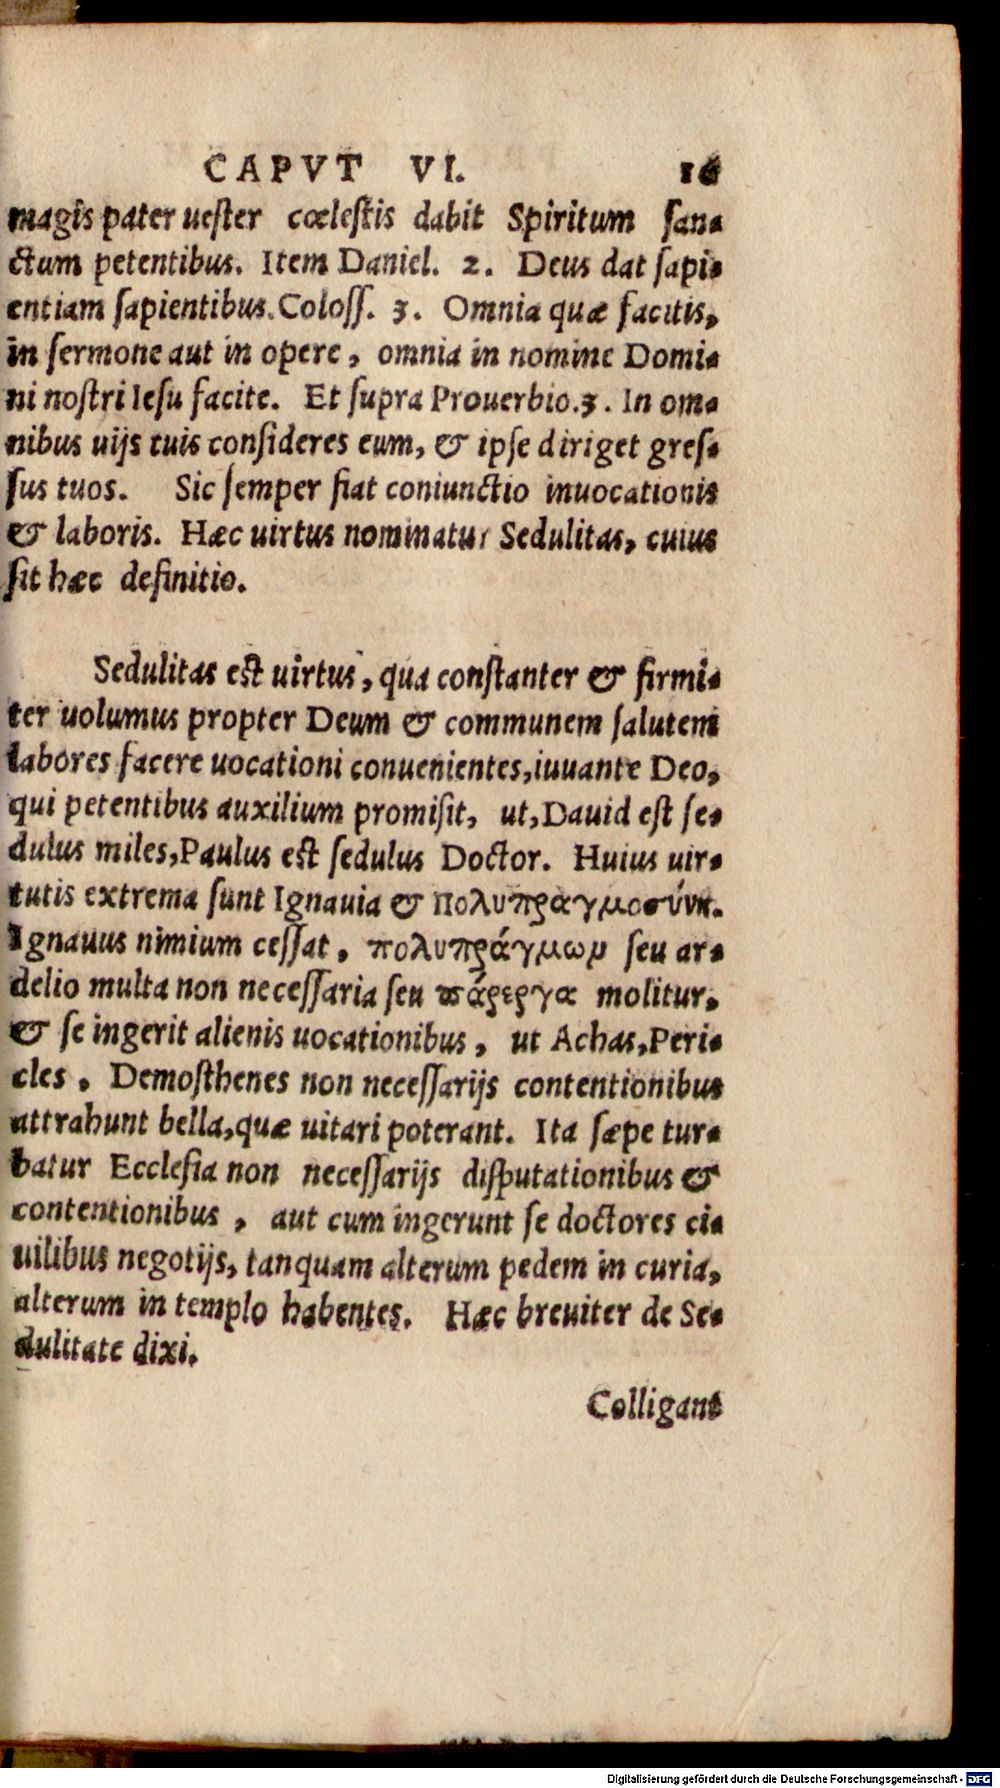 CAPVT VI. 16
magis pater uester cœlestis dabit Spiritum san-
ctum petentibus. Item Daniel. 2. Deus dat sapi-
entiam sapientibus. Coloss. 3. Omnia quæ facitis,
in sermone aut in opere, omnia in nomine Domi-
ni nostri Iesu facite. Et supra Prouerbio. 3. In om-
nibus uijs tuis consideres eum, & ipse diriget gres-
sus tuos. Sic semper fiat coniunctio inuocationis
& laboris. Hæc uirtus nominatur Sedulitas, cuius
sit hæc definitio.
Sedulitas est uirtus, qua constanter & firmi-
ter uolumus propter Deum & communem salutem
labores facere uocationi conuenientes, iuuante Deo,
qui petentibus auxilium promisit, ut, Dauid est se-
dulus miles, Paulus est sedulus Doctor. Huius uir-
tutis extrema sunt Ignauia & πολυπραγμοσύνη.
Ignauus nimium cessat, πολυπράγμων seu ar-
delio multa non necessaria seu πάρεργα molitur,
& se ingerit alienis uocationibus, ut Achas, Peri-
cles, Demosthenes non necessarijs contentionibus
attrahunt bella, quæ uitari poterant. Ita sæpe tur-
batur Ecclesia non necessarijs disputationibus &
contentionibus, aut cum ingerunt se doctores ci-
uilibus negotijs, tanquam alterum pedem in curia,
alterum in templo habentes. Hæc breuiter de Se-
dulitate dixi.
Colligant
Digitalisierung gefördert durch die Deutsche Forschungsgemeinschaft - DFG